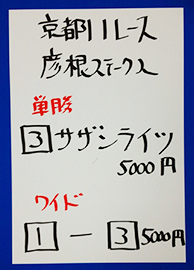 京都11レース
彦根ステークス
単勝
3 サザンライツ
5000円
ワイド
1 - 3 5000円